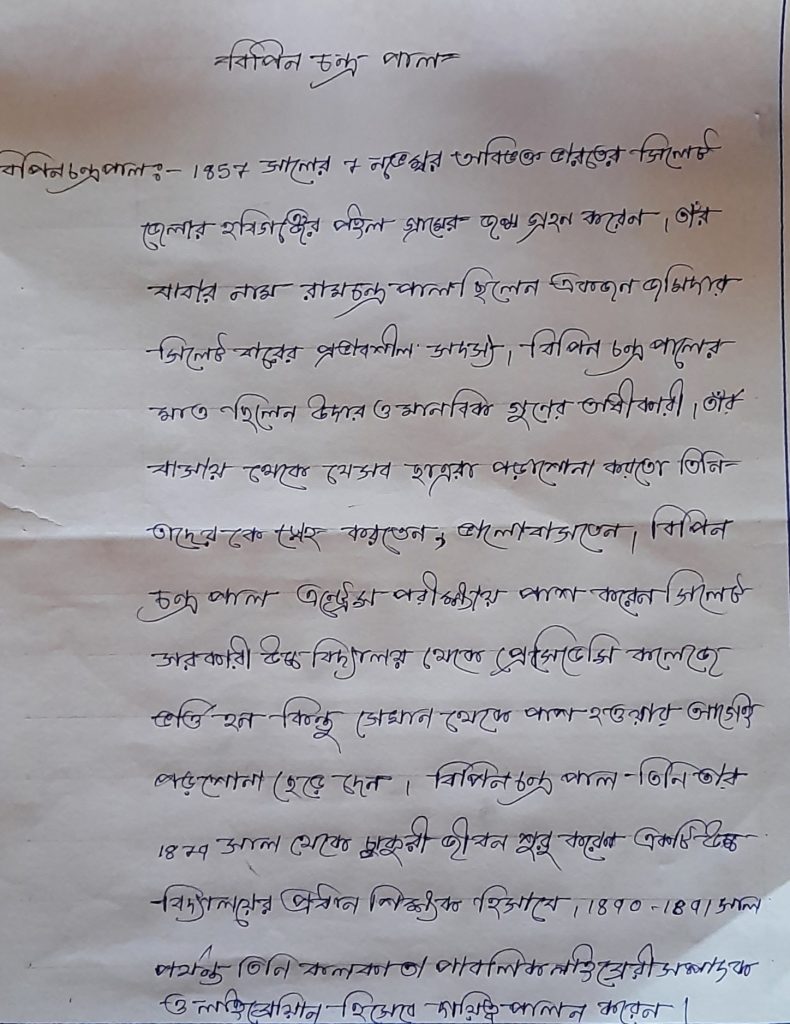 বিপিন চন্দ্র পাল
বিপিন চন্দ্র পাল :- 1857 সালের 7 নভেম্বর অবিভক্ত ভারতের সিলেট
জেলার হবিগঞ্জের পইল গ্রামের জন্ম গ্রহন করেন। তাঁর
বাবার নাম রামচন্দ্র পাল ছিলেন একজন জমিদার
সিলেট বারের প্রভাবশীল সদস্য। বিপিন চন্দ্র পালের
মাত ছিলেন উদার ও মানবিক গুনের অধীকারী। তাঁর
বাসায় থেকে যেসব ছাত্ররা পড়াশোনা করতো তিনি
তাদের কে স্নেহ করতেন, ভালোবাসতেন। বিপিন
চন্দ্র পাল এন্ট্রেন্স পরীক্ষায় পাশ করেন সিলেট
সরকারী উচ্চ বিদ্যালয় থেকে প্রেসিডেন্সি কলেজে
ভর্তি হন কিন্তু সেখান থেকে পাশ হওয়ার আগেই
পড়াশোনা ছেড়ে দেন। বিপিন চন্দ্র পাল তিনি তার
1879 সাল থেকে চাকুরী জীবন শুরু করেন একটি উচ্চ
বিদ্যালয়ের প্রধান শিক্ষক হিসাবে। 1890-1891 সাল
পর্যন্ত তিনি কলকাতা পাবলিক লাইব্রেরী সম্পাদক
ও লাইব্রেরিয়ান হিসেবে দায়িত্ব পালন করেন।